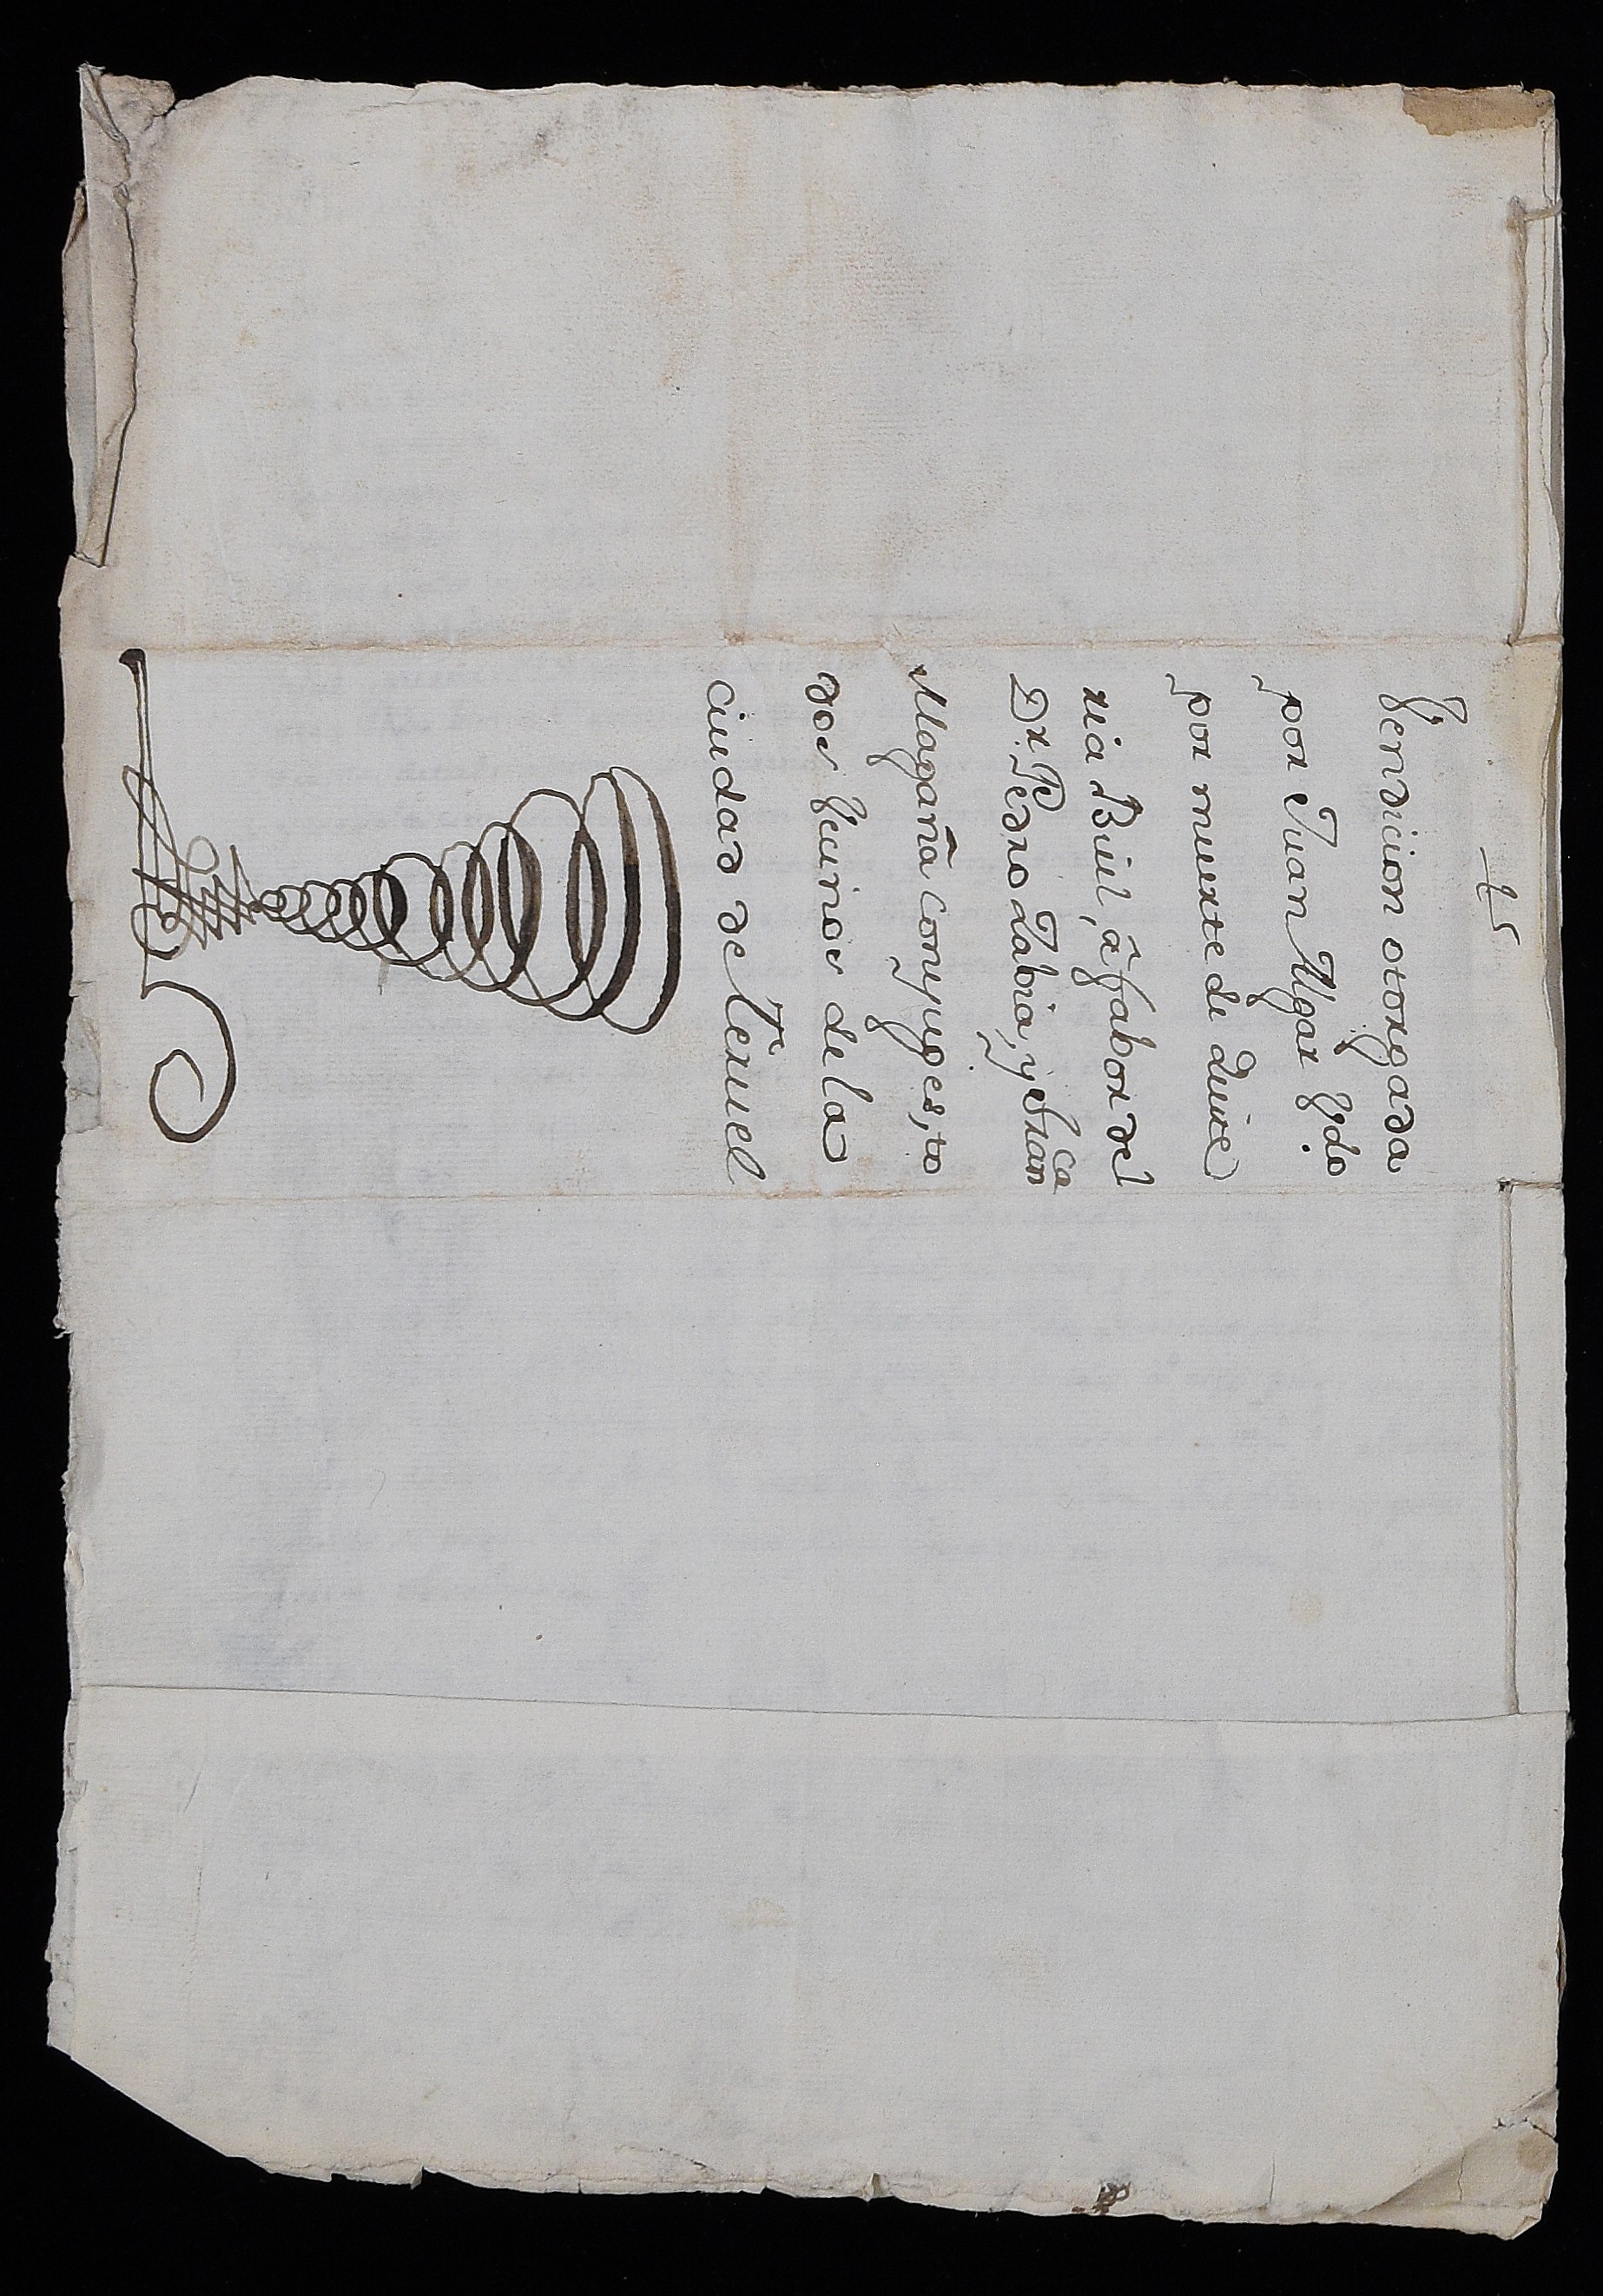 Vendicion otorgada
por Juan Algar Vdo.
por muerte de Quite
ria Buil, â fabor del
Dr. Pedro Labria, y Fran.ca
Magaña Conyuges, to
dos Vecinos de la
Ciudad de Teruel